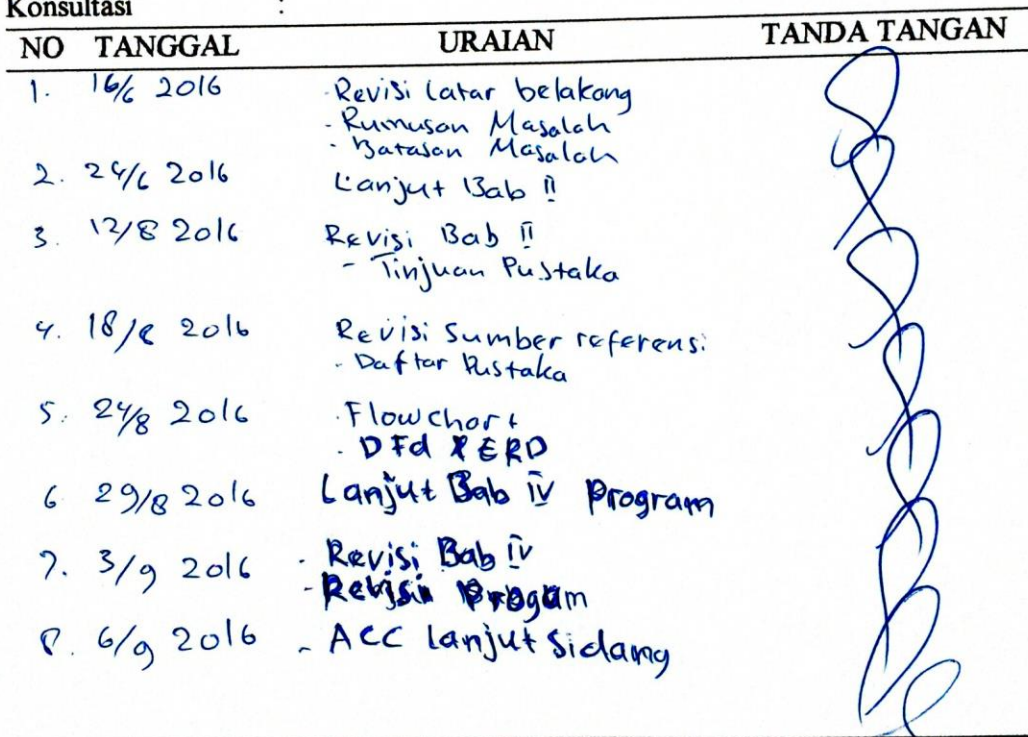 Konsultasi :
NO TANGGAL URAIAN TANDA TANGAN
1. 16/6 2016 - Revisi Latar belakang
- Rumusan Masalah
- Batasan Masalah
2. 24/6 2016 Lanjut Bab II
3. 12/8 2016 Revisi Bab II
- Tinjuan Pustaka
4. 18/8 2016 Revisi Sumber referensi
- Daftar Pustaka
5. 24/8 2016 - Flowchart
- DFd & ERD
6 29/8 2016 Lanjut Bab IV Program
7. 3/9 2016 - Revisi Bab IV
- Revisi Progam
8. 6/9 2016 - ACC Lanjut Sidang